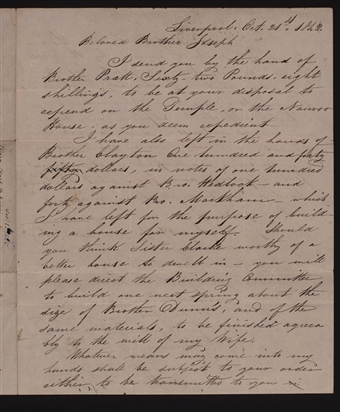 Liverpool. Oct. 21st, 1842.
Beloved Brother Joseph
I send you by the hand of
Brother Pratt, Sixty-two Pounds-eight
shillings, to be at your disposal to
expend on the Temple, or the Nauvoo
House, as you deem expedient
I have also left in the hands of
Brother Clayton One hundred and forty
dollars, in notes of one hundred
dollars against Br. Hedlock and
forty against Bro. Markham which
I have left for the purpose of build
ing a house for myself. Should
you think Sister Clarke worthy of a
better house to dwell in – you will
please direct the Building Committee
to build one next spring about the
size of Brother and of the
same materials, to be finished agreea
bly to the will of my Wife.
Whatever means may come into my
hands shall be subject to your order
either to be transmitted to you in